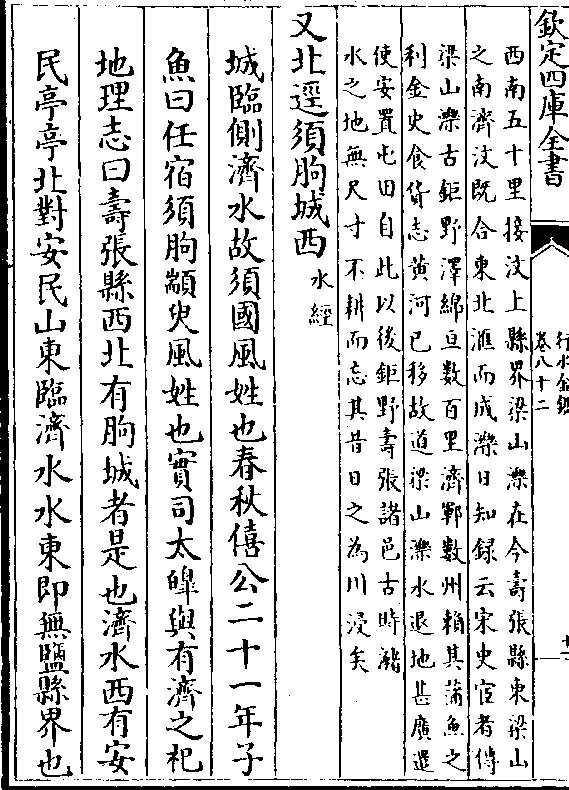 欽定四庫全書
行水金鑑
卷八十二
十一
西南五十里接汶上縣界梁山濼在今壽張縣東梁山
之南濟汶既合東北滙而成濼日知録云宋史宦者傳
梁山濼古鉅野澤綿亘數百里濟鄆數州賴其蒲魚之
利金史食貨志黄河已移故道梁山濼水退地甚廣遣
使安置屯田自此以後鉅野壽張諸邑古時瀦
水之地無尺寸不耕而忘其昔日之為川浸矣
又北逕須朐城西水經
城臨側濟水故須國風姓也春秋僖公二十一年子
魚曰任宿須朐顓臾風姓也實司太皥與有濟之祀
地理志曰壽張縣西北有朐城者是也濟水西有安
民亭亭北對安民山東臨濟水水東即無鹽縣界也